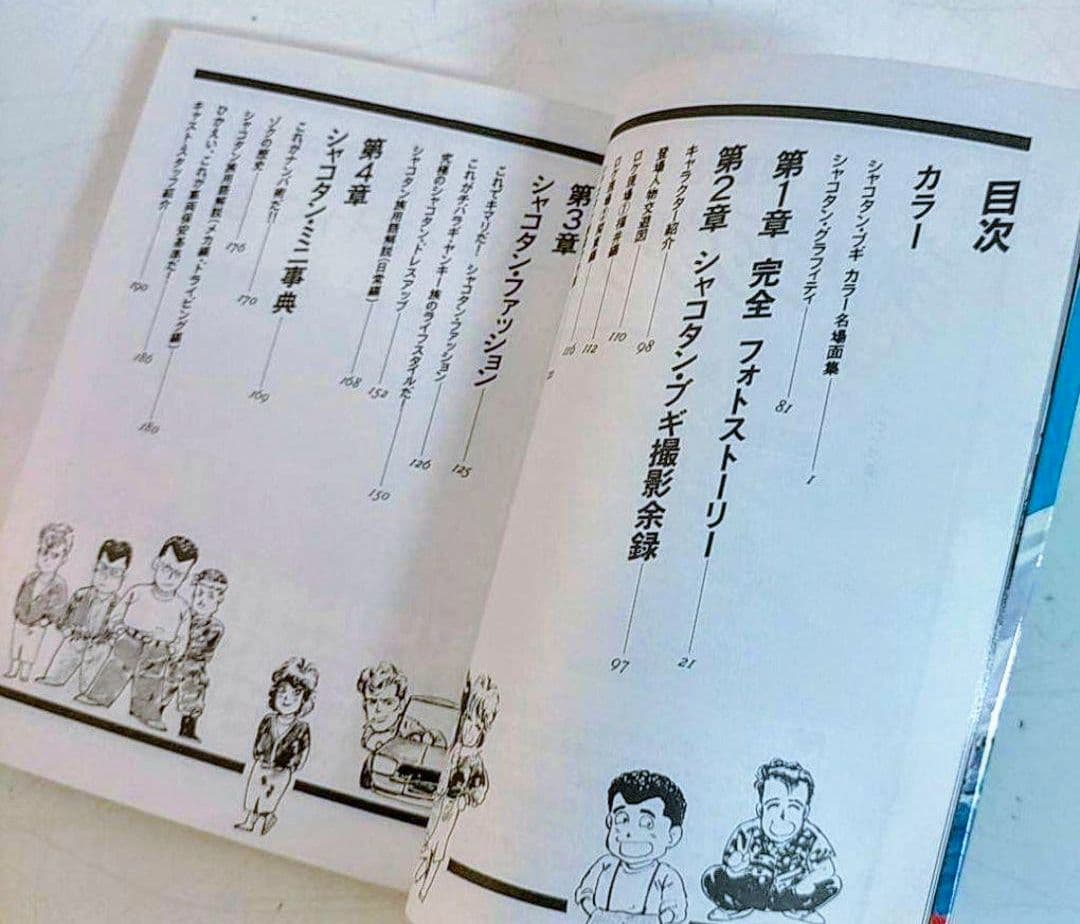 目次
カラー
シャコタン・ブギ カラー名場面集 1
シャコタン・グラフィティ 81
第1章 完全 フォトストーリー 21
第2章 シャコタン・ブギ撮影余録 97
キャラクター紹介 98
登場人物交遊図 110
ロケ現場①福井編 112
116
第3章
シャコタン・ファッション 125
これでキマリだ! シャコタン・ファッション 126
これがチバラギ・ヤンキー族のライフスタイルだ! 150
究極のシャコタン、ドレスアップ 152
シャコタン族用語解説(日常編) 168
第4章
シャコタン・ミニ事典 169
これがナンパ術だ!! 170
ゾクの歴史 176
シャコタン族用語解説(メカ編・ドライビング編) 180
ひかえい、これが車両保安基準だ! 186
キャスト&スタッフ紹介 190